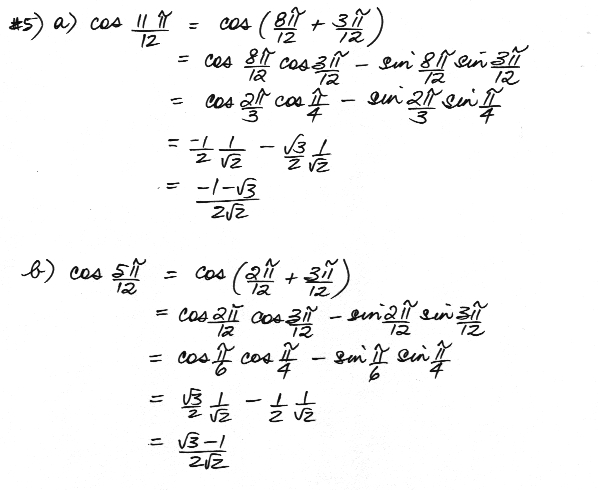 #5) a) cos 11π/12 = cos (8π/12 + 3π/12)
= cos 8π/12 cos 3π/12 − sin 8π/12 sin 3π/12
= cos 2π/3 cos π/4 − sin 2π/3 sin π/4
= -1/2 1/√2 − √3/2 1/√2
= -1-√3/2√2
b) cos 5π/12 = cos (2π/12 + 3π/12)
= cos 2π/12 cos 3π/12 − sin 2π/12 sin 3π/12
= cos π/6 cos π/4 − sin π/6 sin π/4
= √3/2 1/√2 − 1/2 1/√2
= √3-1/2√2